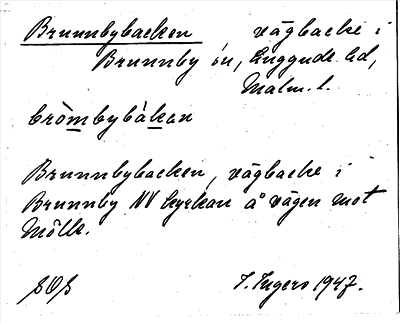 Brunnbybacken vägbacke i
Brunnby sn, Luggude hd,
Malm. l.
bròmbybàkan
Brunnbybacken, vägbacke i
Brunnby NV kyrkan å vägen mot
Mölle.
I. Ingers 1947.